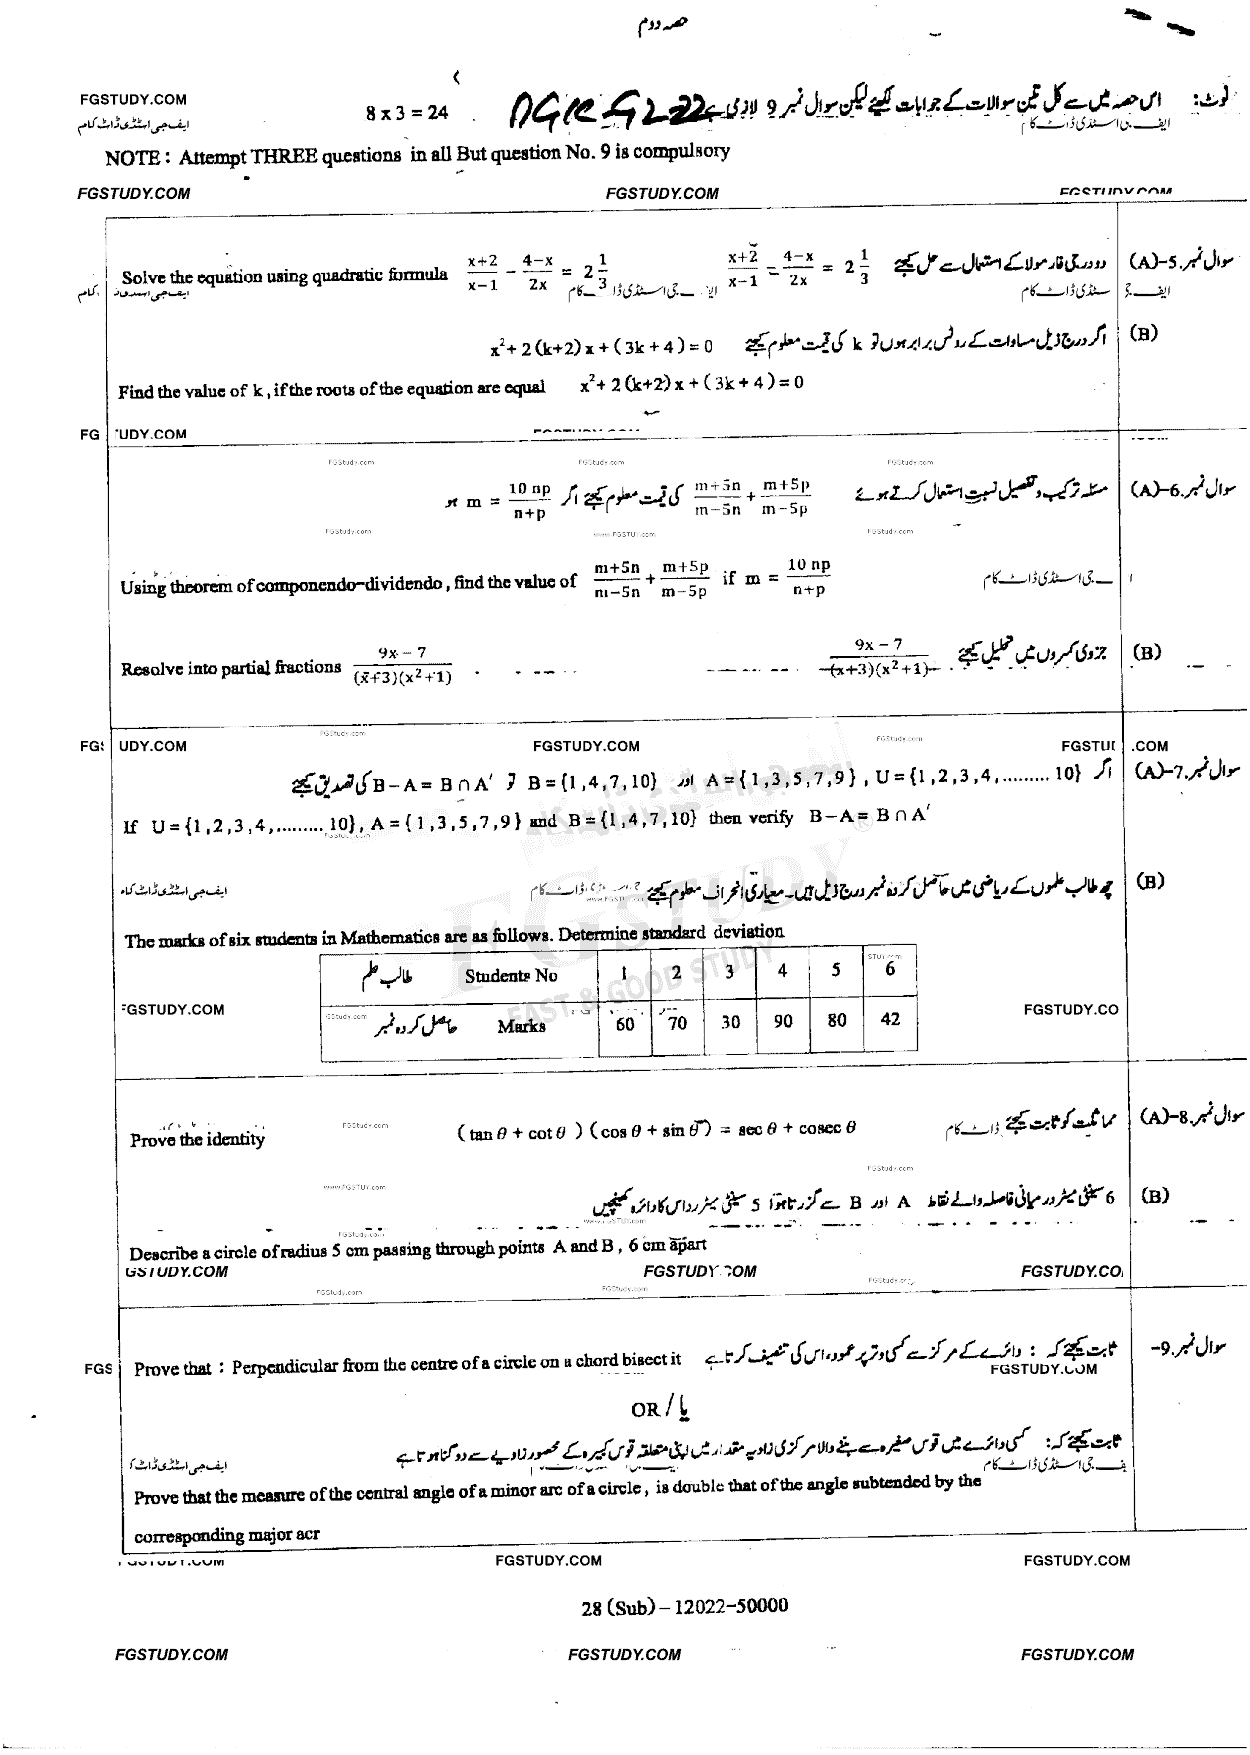 حصہ دوم
FGSTUDY.COM
ایف جی اسٹڈی ڈاٹ کام
8 x 3 = 24
نوٹ: اس حصہ میں سے کل تین سوالات کے جوابات لکھئے لیکن سوال نمبر 9 لازمی ہے
NOTE : Attempt THREE questions in all But question No. 9 is compulsory
FGSTUDY.COM FGSTUDY.COM FGSTUDY.COM
سوال نمبر.5-(A) دو درجی فارمولا کے استعمال سے حل کیجئے (x+2)/(x−1) − (4−x)/(2x) = 2 1/3
Solve the equation using quadratic formula (x+2)/(x−1) − (4−x)/(2x) = 2 1/3
(B) اگر درج ذیل مساوات کے روٹس برابر ہوں تو k کی قیمت معلوم کیجئے x²+ 2(k+2)x+(3k+4)=0
Find the value of k, if the roots of the equation are equal x²+ 2(k+2)x+(3k+4)=0
سوال نمبر.6-(A) مسئلہ ترکیب و تفصیل نسبت استعمال کرتے ہوئے (m+5n)/(m−5n) + (m+5p)/(m−5p) کی قیمت معلوم کیجئے اگر m = 10 np/(n+p) ہو
Using theorem of componendo-dividendo, find the value of (m+5n)/(m−5n) + (m+5p)/(m−5p) if m = 10 np/(n+p)
(B) جزوی کسروں میں تحلیل کیجئے (9x − 7)/((x+3)(x²+1))
Resolve into partial fractions (9x − 7)/((x+3)(x²+1))
FGSTUDY.COM
سوال نمبر.7-(A) اگر U={1,2,3,4,.........10} , A={1,3,5,7,9} اور B={1,4,7,10} تو B−A= B∩A′ کی تصدیق کیجئے
If U={1,2,3,4,.........10}, A={1,3,5,7,9} and B={1,4,7,10} then verify B−A= B∩A′
(B) چھ طالب علموں کے ریاضی میں حاصل کردہ نمبر درج ذیل ہیں۔ معیاری انحراف معلوم کیجئے
The marks of six students in Mathematics are as follows. Determine standard deviation
طالب علم Students No 1 2 3 4 5 6
حاصل کردہ نمبر Marks 60 70 30 90 80 42
FGSTUDY
FAST & GOOD STUDY
سوال نمبر.8-(A) مماثلت کو ثابت کیجئے
Prove the identity (tan θ + cot θ)(cos θ + sin θ) = sec θ + cosec θ
(B) 6 سینٹی میٹر درمیانی فاصلہ والے نقاط A اور B سے گزرتا ہوا 5 سینٹی میٹر رداس کا دائرہ کھینچیں
Describe a circle of radius 5 cm passing through points A and B, 6 cm apart
FGSTUDY.COM
سوال نمبر.9- ثابت کیجئے کہ : دائرے کے مرکز سے کسی وتر پر عمود، اس کی تنصیف کرتا ہے
Prove that : Perpendicular from the centre of a circle on a chord bisect it
FGSTUDY.COM
OR / یا
ثابت کیجئے کہ: کسی دائرے میں قوس صغیرہ سے بننے والا مرکزی زاویہ مقدار میں اپنی متعلقہ قوس کبیرہ کے محصور زاویے سے دو گنا ہوتا ہے
Prove that the measure of the central angle of a minor arc of a circle, is double that of the angle subtended by the
corresponding major acr
FGSTUDY.COM FGSTUDY.COM
28 (Sub) – 12022-50000
FGSTUDY.COM FGSTUDY.COM FGSTUDY.COM